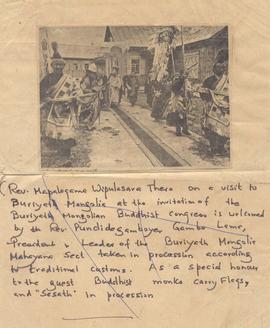 (Rev. Mapalagama Wipulasara Thero on a visit to
Buriyeth Mongolia at the invitation of the
Buriyeth Mongolian Buddhist congress is welcomed
by th Rev Pundide Gambo Leme,
President & Leader of the Buriyeth Mongolia
Mahayana Sect taken in procession according
to traditional customs. As a special honour
to the guest Buddhist monks carry Flags,
and "Sesath" in procession